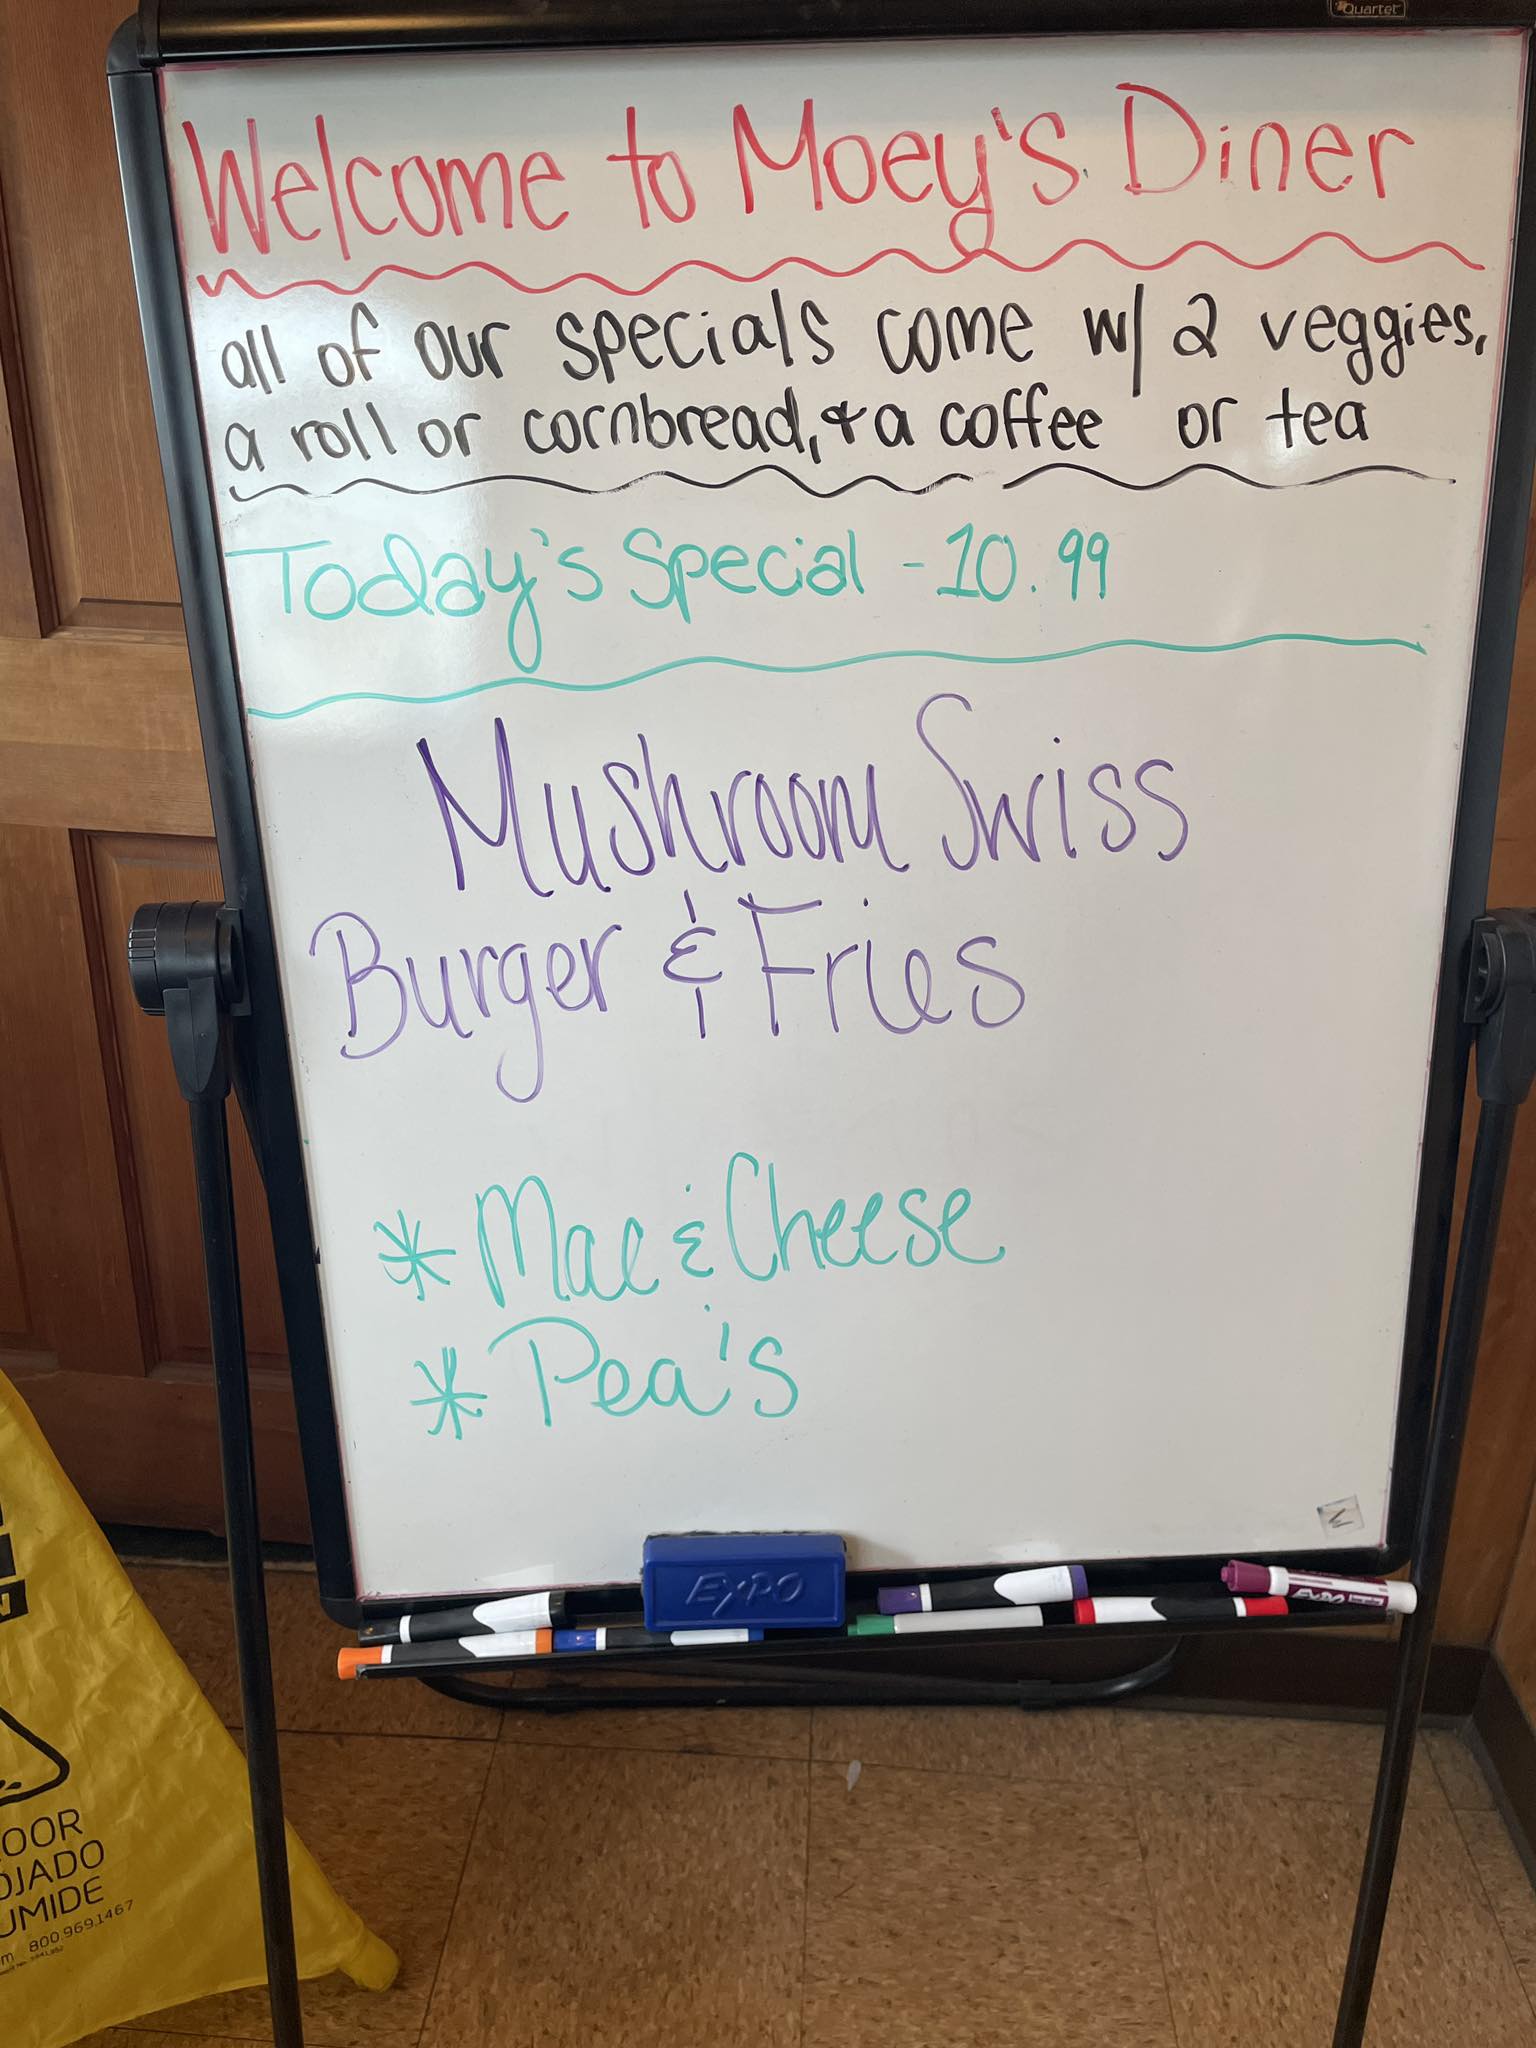 Quartet
Welcome to Moey's Diner
all of our specials come w/ 2 veggies,
a roll or cornbread, & a coffee or tea
Today's Special - 10.99
Mushroom Swiss
Burger & Fries
* Mac & Cheese
* Pea's
EXPO
EXPO
OOR
OJADO
UMIDE
m 800.969.1467